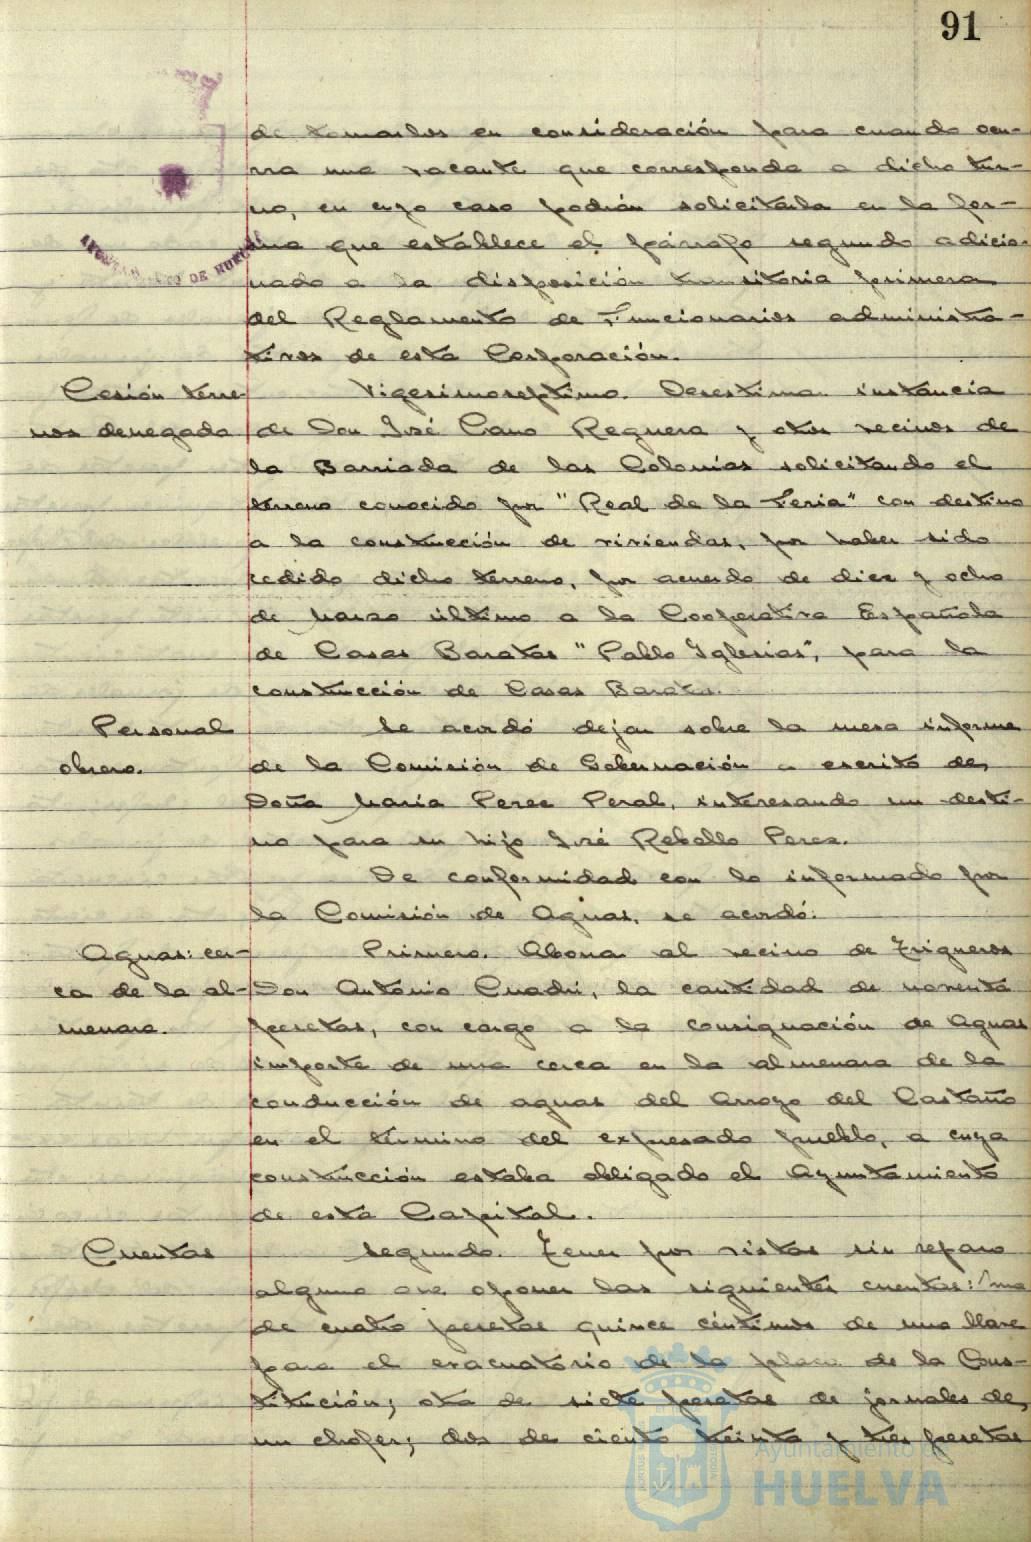 91
de tomarlos en consideración para cuando ocu-
rra una vacante que corresponda a dicho tur-
no, en cuyo caso podrán solicitarla en la for-
ma que establece el párrafo segundo adicio-
nado a la disposición transitoria primera
del Reglamento de Funcionarios administra-
tivos de esta Corporación.
Cesión terre-
nos denegada
Vigesimoseptimo. Desestimar instancia
de Don José Cano Reguera y otros vecinos de
la Barriada de las Colonias solicitando el
terreno conocido por "Real de la Feria" con destino
a la construcción de viviendas, por haber sido
cedido dicho terreno, por acuerdo de diez y ocho
de Marzo último a la Cooperativa Española
de Casas Baratas "Pablo Iglesias", para la
construcción de Casas Baratas.
Personal
obrero.
Se acordó dejar sobre la mesa informe
de la Comisión de Gobernación a escrito de
Doña Maria Perez Peral, interesando un desti-
no para su hijo José Rebollo Perez.
De conformidad con lo informado por
la Comisión de Aguas, se acordó:
Aguas: cer-
ca de la al-
menara.
Primero. Abonar al vecino de Trigueros
Don Antonio Cuadri, la cantidad de noventa
pesetas, con cargo a la consignación de Aguas
importe de una cerca en la almenara de la
conducción de aguas del Arroyo del Castaño
en el término del expresado pueblo, a cuya
construcción estaba obligado el Ayuntamiento
de esta Capital.
Cuentas
Segundo. Tener por vistas sin reparo
alguno que oponer las siguientes cuentas: Una
de cuatro pesetas quince céntimos de una llave
para el evacuatorio de la plaza de la Cons-
titución; otra de siete pesetas de jornales de
un chofer; dos de ciento treinta y tres pesetas
AYUNTAMIENTO DE HUELVA
Ayuntamiento de
HUELVA